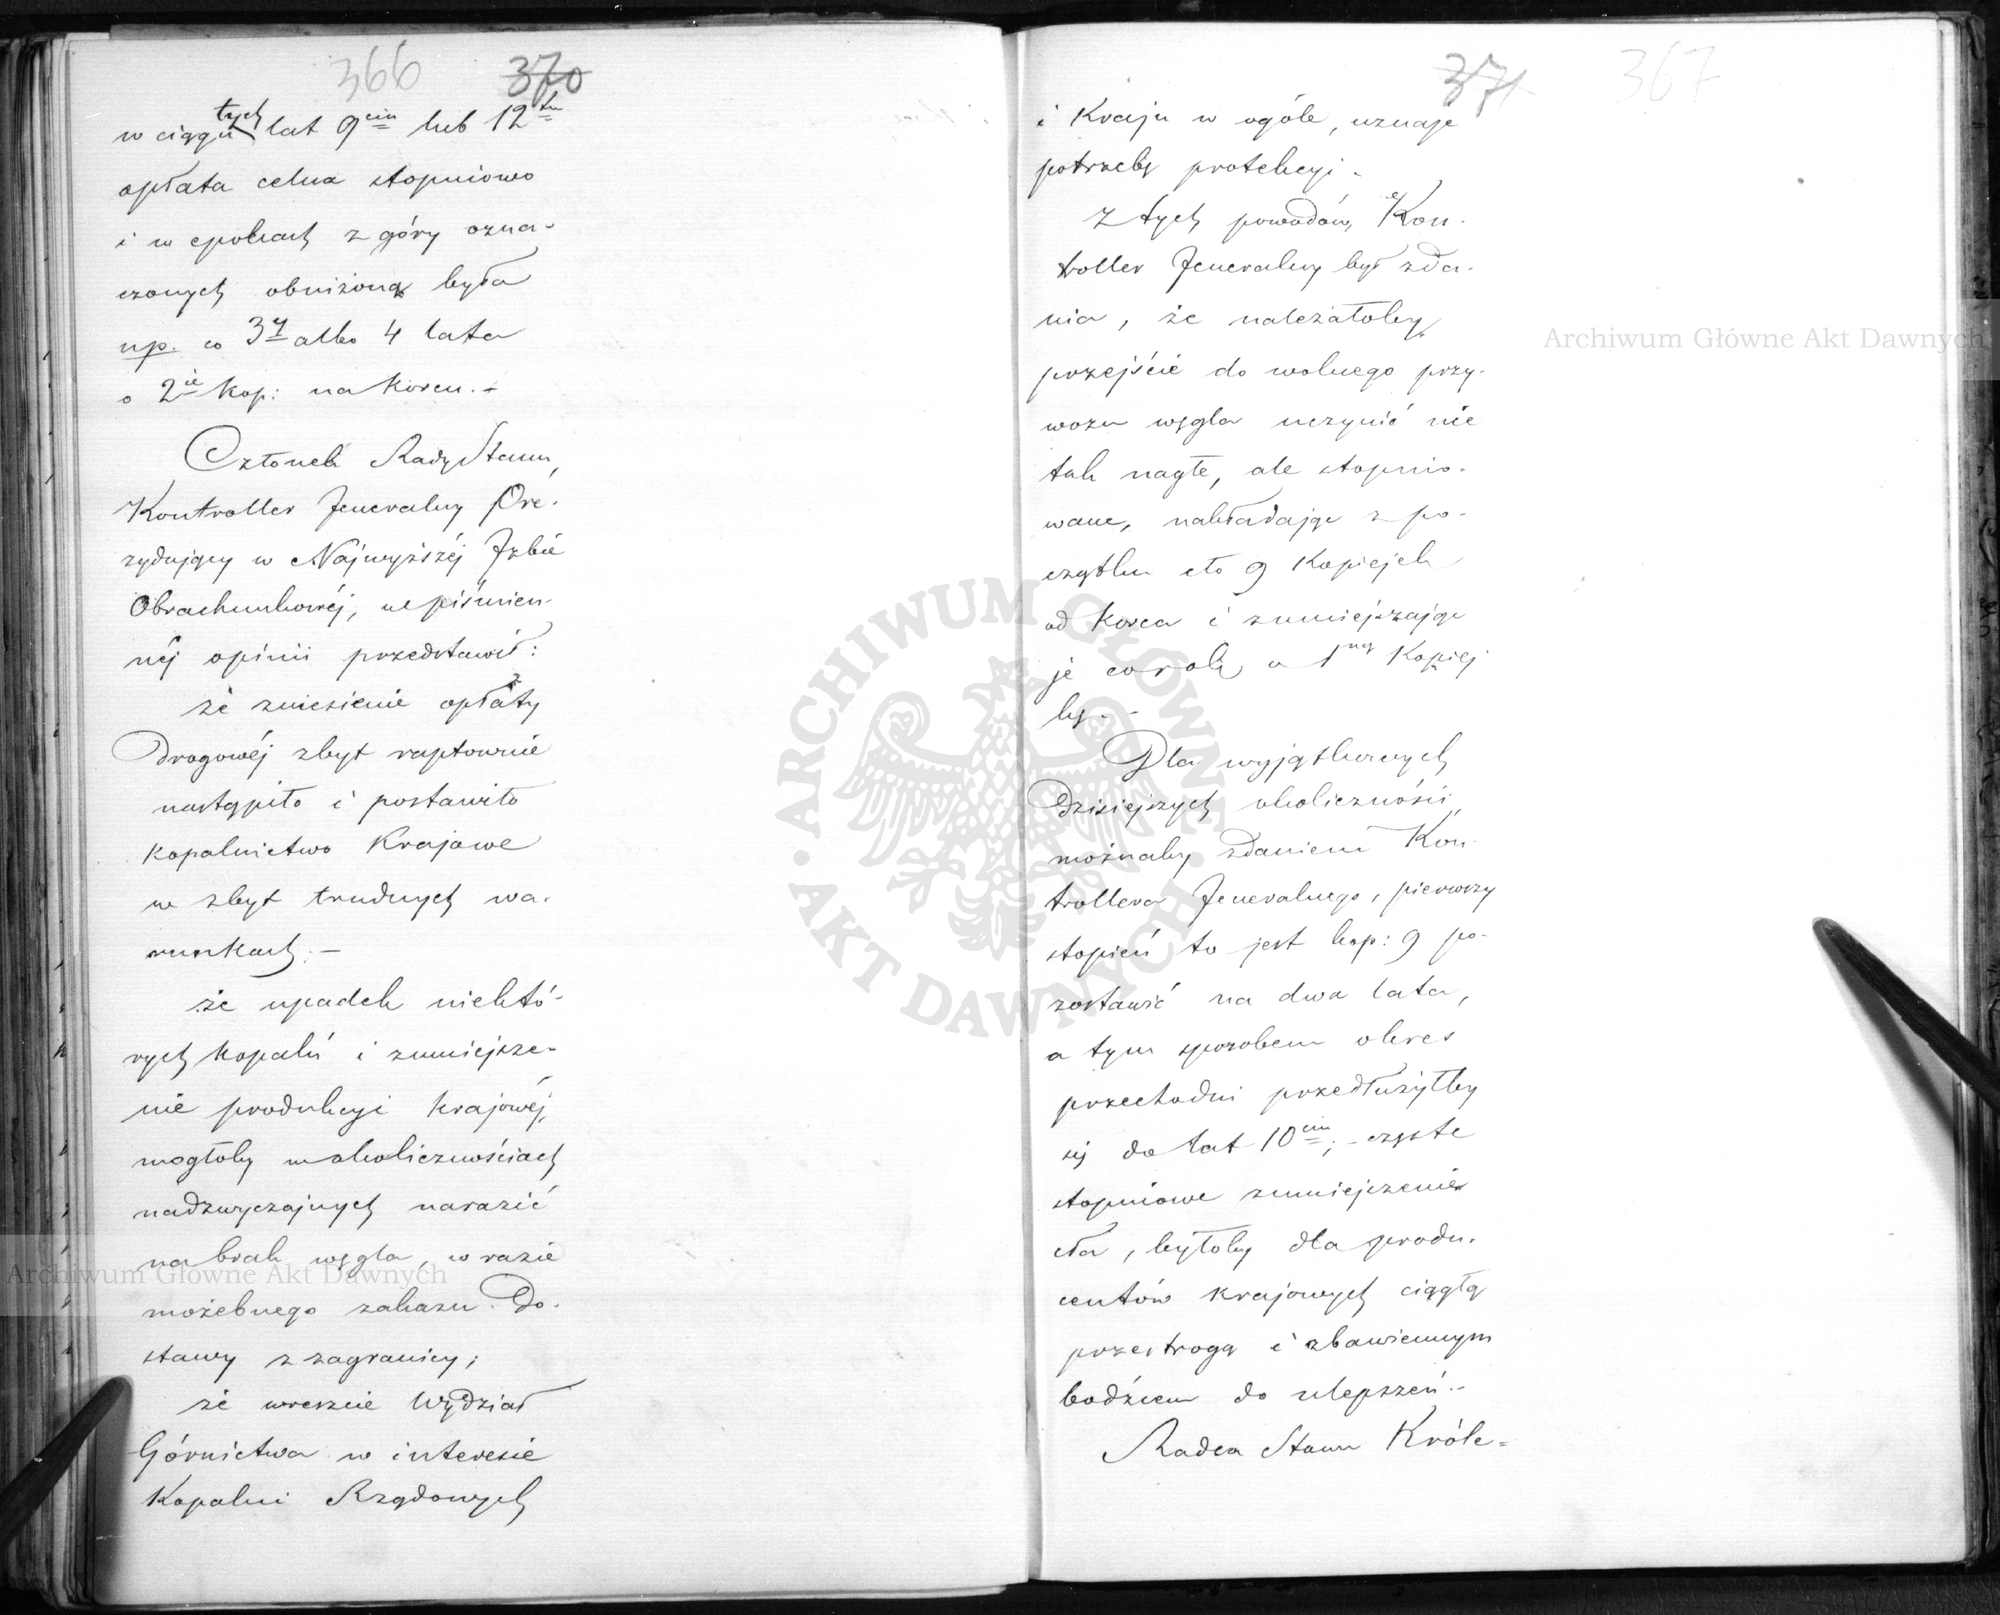 366 370
w ciągu tych lat 9ciu lub 12tu
opłata celna stopniowo
i w epokach z góry ozna-
czonych obniżoną była
np. co 3y albo 4 lata
o 2ie kop: na korcu. -
Członek Rady Stanu,
Kontroller Jeneralny Pre-
zydujący w Najwyższéj Izbie
Obrachunkowéj, w piśmien-
néj opinii przedstawił:
że zniesienie opłaty
drogowéj zbyt raptownie
nastąpiło i postawiło
kopalnictwo Krajowe
w zbyt trudnych wa-
runkach; -
że upadek niektó-
rych kopalń i zmniejsze-
nie produkcyi krajowéj,
mogłoby w okolicznościach
nadzwyczajnych narazić
na brak węgla, w razie
możebnego zakazu do-
stawy z zagranicy;
że wreszcie Wydział
Górnictwa w interesie
Kopalni Rządowych
371 367
i Kraju w ogóle, uznaje
potrzebę protekcyi.
Z tych powodów, Kon-
troller Jeneralny był zda-
nia, że należałoby
przejście do wolnego przy-
wozu węgla uczynić nie
tak nagłe, ale stopnio-
wane, nakładając z po-
czątku cło 9 Kopiejek
od Korca i zmniejszając
je co rok o 1ną Kopiej
kę. -
Dla wyjątkowych
dzisiejszych okoliczności,
możnaby zdaniem Kon-
trollera Jeneralnego, pierwszy
stopień to jest kop: 9 po-
zostawić na dwa lata,
a tym sposobem okres
przechodni przedłużyłby
się do lat 10ciu; - częste
stopniowe zmniejszenie
cła, byłoby dla produ-
centów krajowych ciągłą
przestrogą i zbawiennym
bodźcem do ulepszeń. -
Radca Stanu Króle-
Archiwum Główne Akt Dawnych
Archiwum Główne Akt Dawnych
ARCHIWUM GŁÓWNE • AKT DAWNYCH •